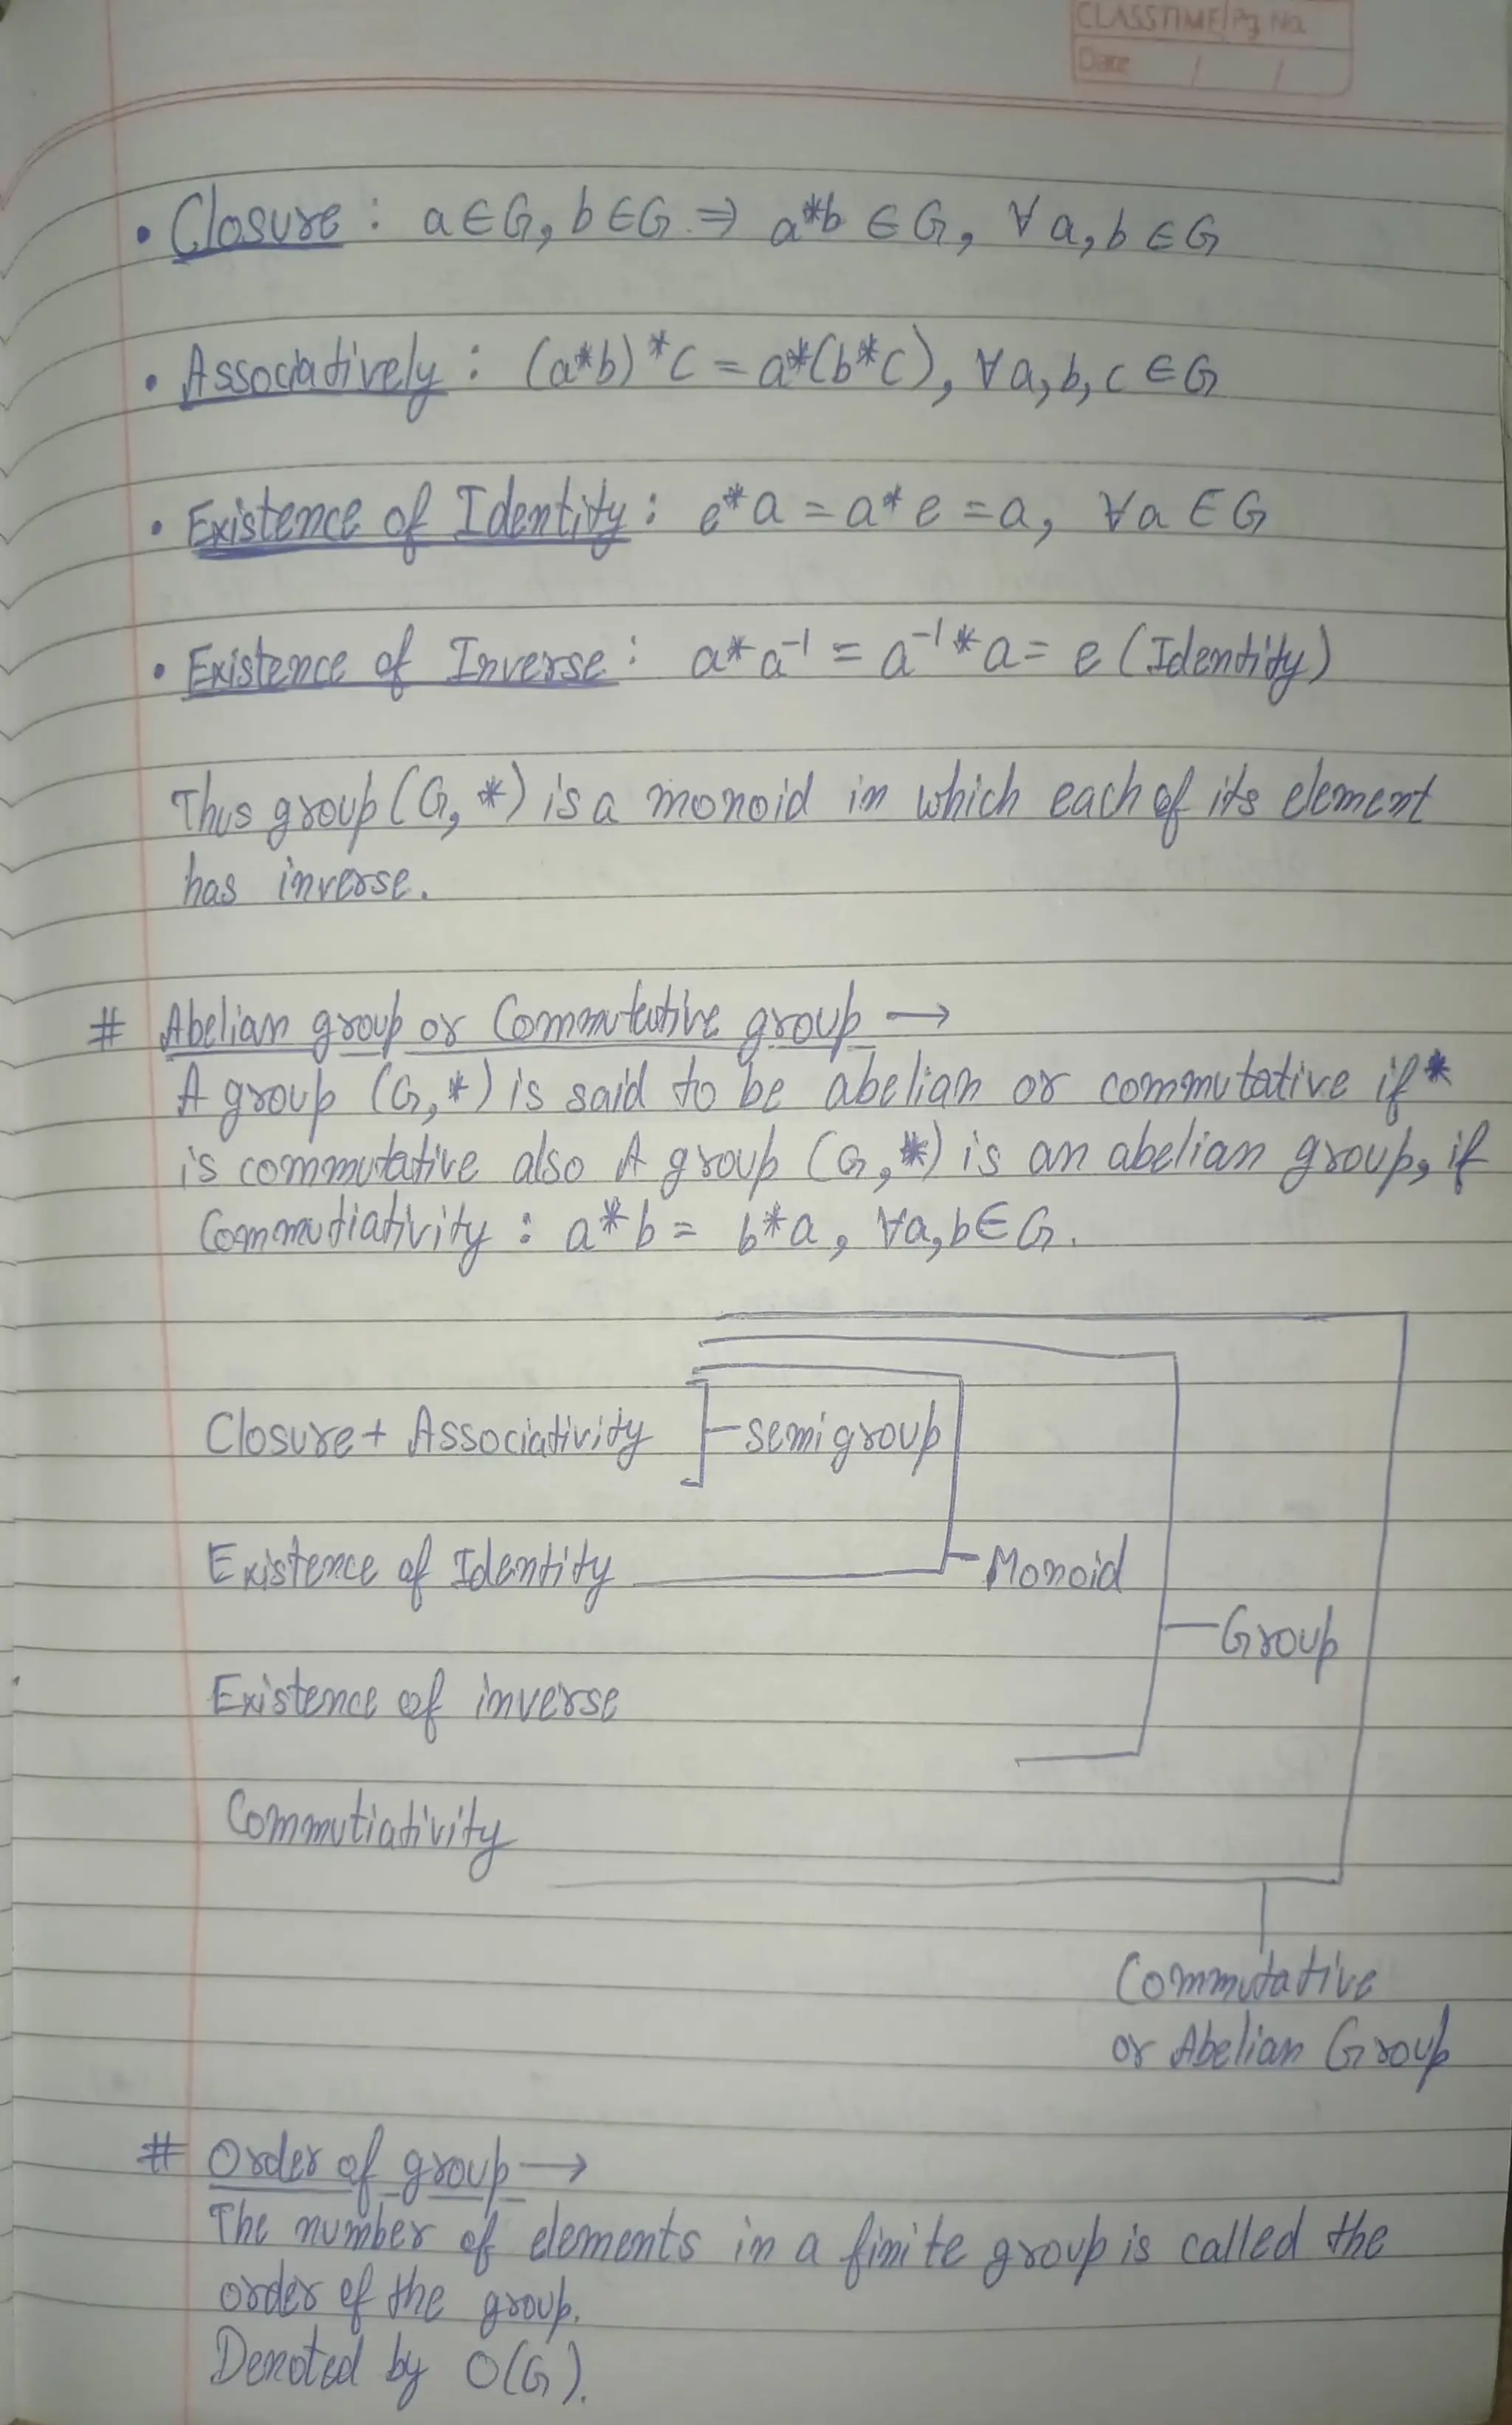 CLASSTIME Pg No.
Date / /
• Closure : a ∈ G, b ∈ G ⇒ a*b ∈ G, ∀ a, b ∈ G
• Associatively : (a*b)*c = a*(b*c), ∀ a, b, c ∈ G
• Existence of Identity : e*a = a*e = a, ∀ a ∈ G
• Existence of Inverse : a*a⁻¹ = a⁻¹*a = e (Identity)
Thus group (G, *) is a monoid in which each of its element
has inverse.
# Abelian group or Commutative group →
A group (G, *) is said to be abelian or commutative if *
is commutative also A group (G, *) is an abelian group, if
Commutiativity : a*b = b*a, ∀ a, b ∈ G.
Closure + Associativity semigroup
Existence of Identity Monoid
Group
Existence of inverse
Commutiativity
Commutative
or Abelian Group
# Order of group →
The number of elements in a finite group is called the
order of the group.
Denoted by O(G).